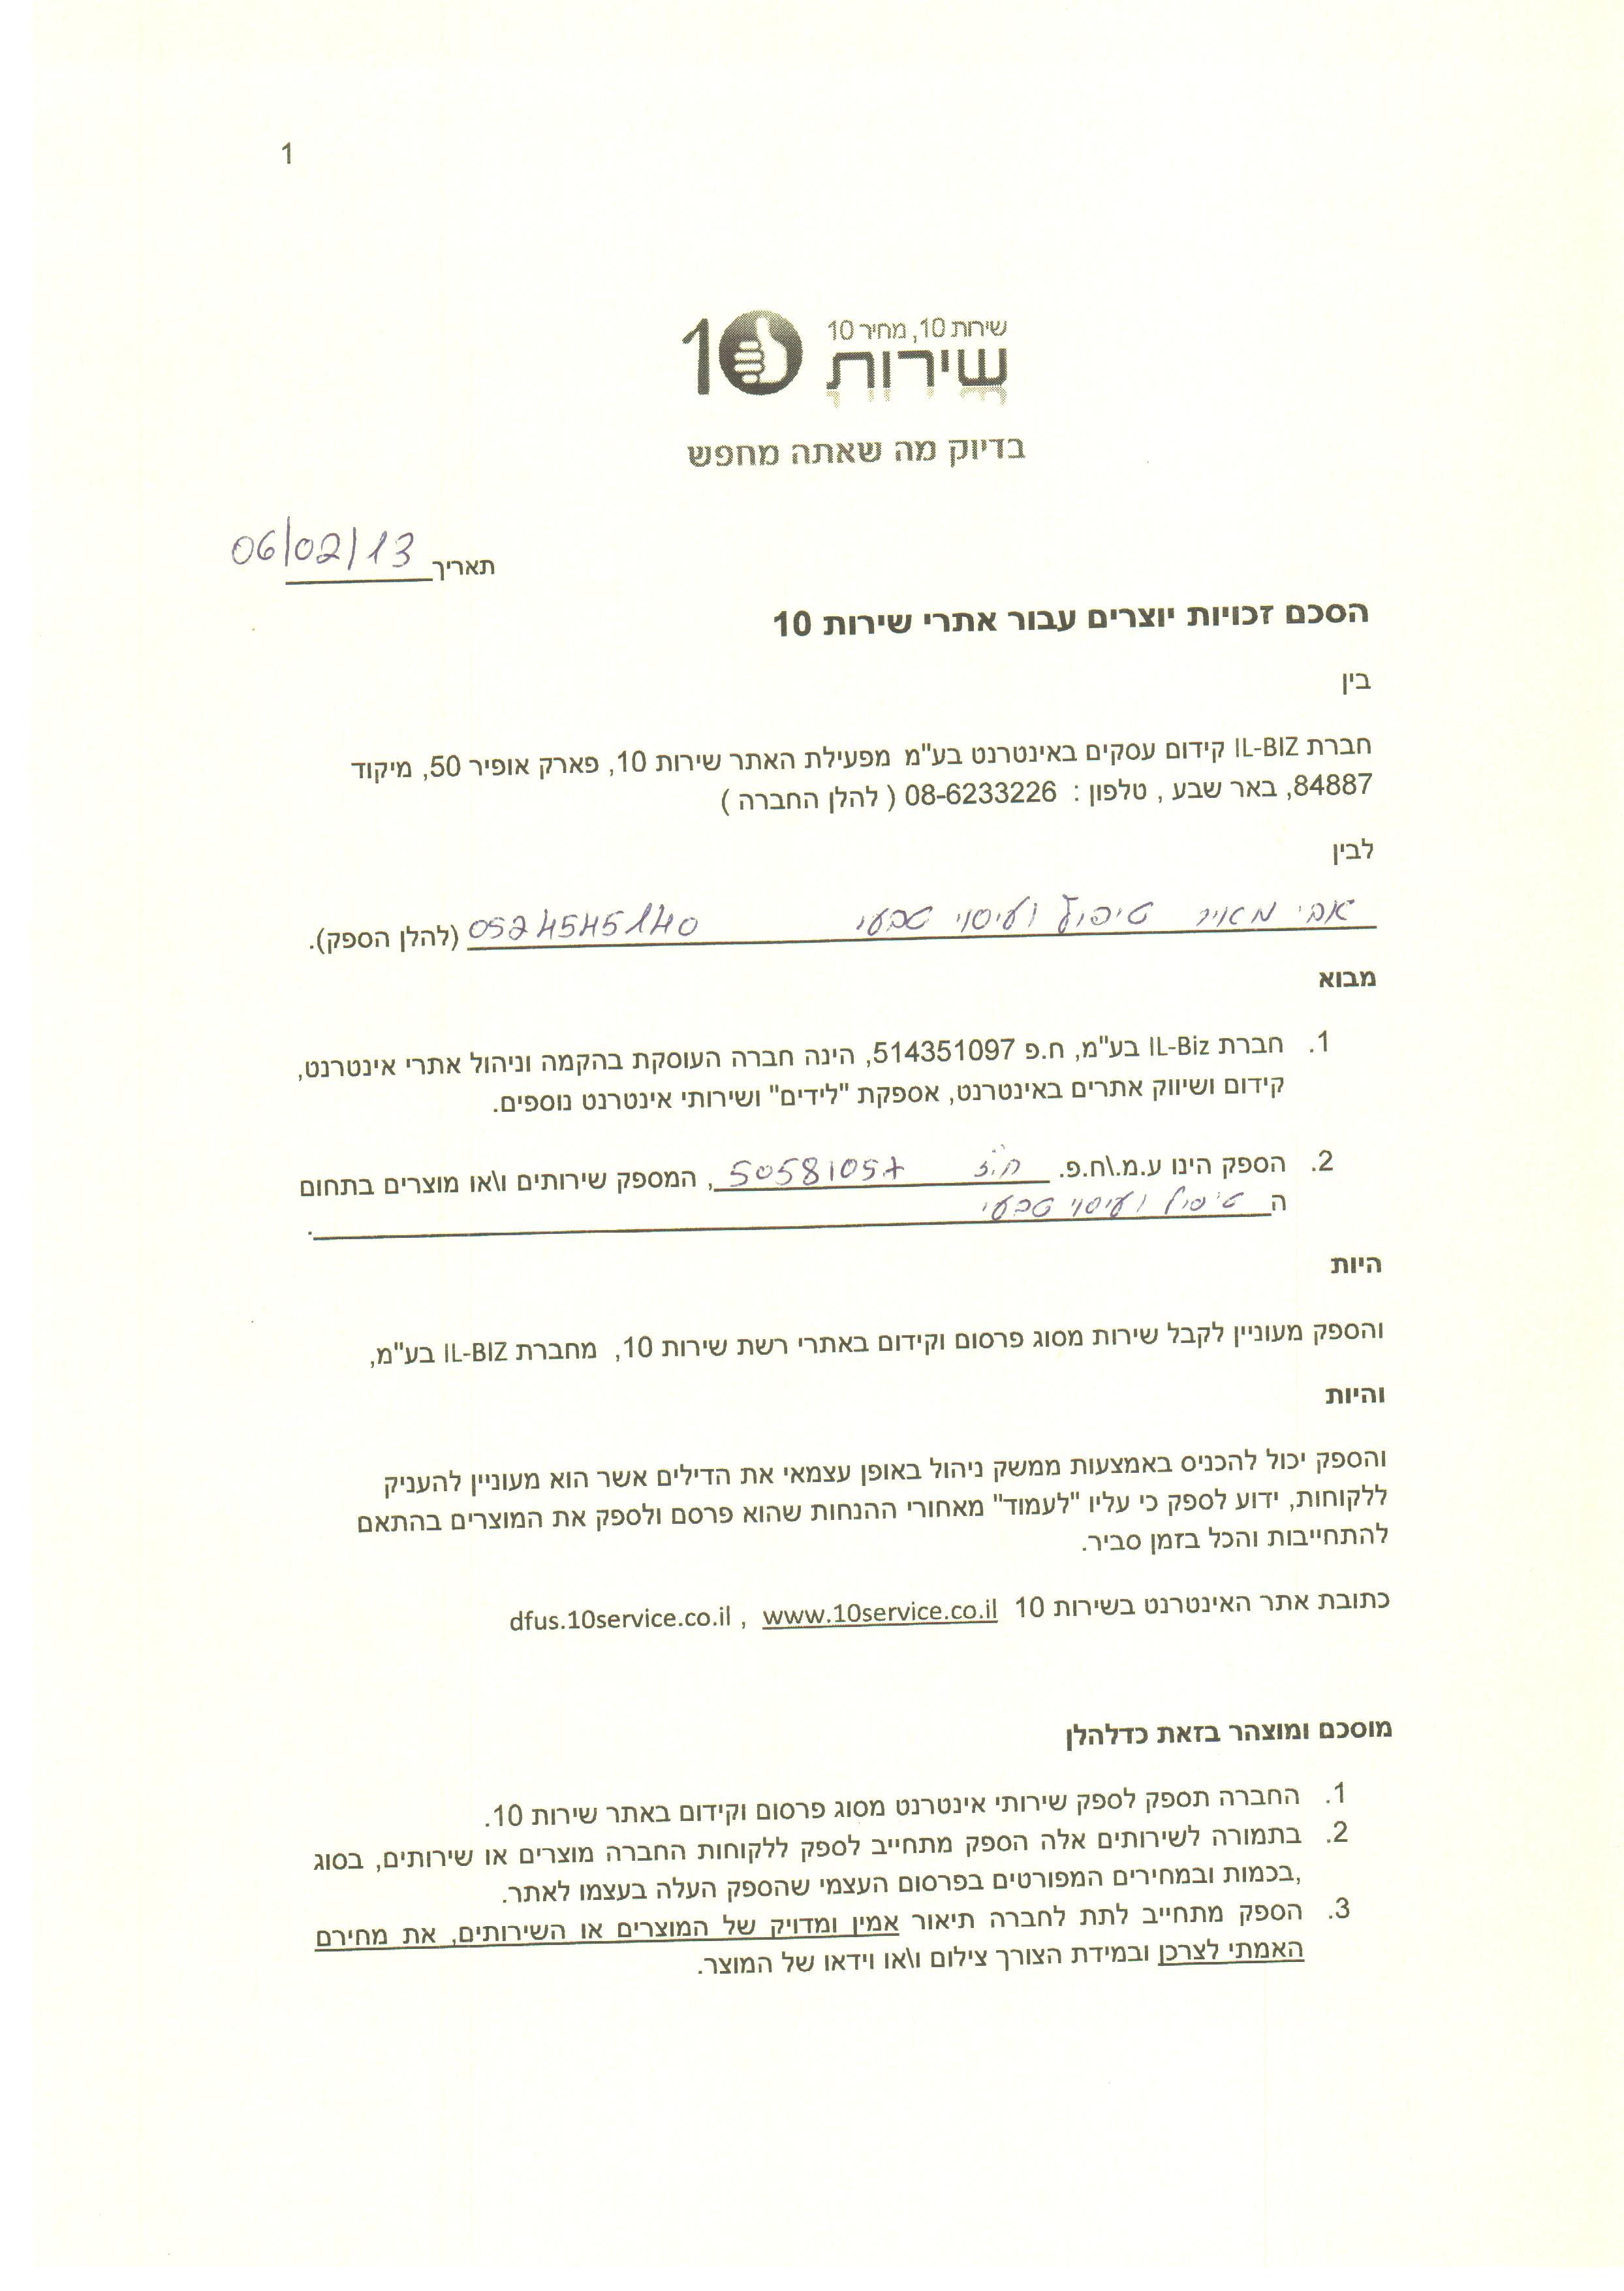 1
שירות 10, מחיר 10
10 שירות
בדיוק מה שאתה מחפש
תאריך 06/02/13
הסכם זכויות יוצרים עבור אתרי שירות 10
בין
חברת IL-BIZ קידום עסקים באינטרנט בע"מ מפעילת האתר שירות 10, פארק אופיר 50, מיקוד
84887, באר שבע , טלפון : 08-6233226 ( להלן החברה )
לבין
אבי מאיר טיפול ועיסוי טבעי 0524545140 (להלן הספק).
מבוא
1. חברת IL-Biz בע"מ, ח.פ 514351097, הינה חברה העוסקת בהקמה וניהול אתרי אינטרנט,
קידום ושיווק אתרים באינטרנט, אספקת "לידים" ושירותי אינטרנט נוספים.
2. הספק הינו ע.מ.\ח.פ. 50581057 , המספק שירותים ו\או מוצרים בתחום
ה טיפול ועיסוי טבעי.
היות
והספק מעוניין לקבל שירות מסוג פרסום וקידום באתרי רשת שירות 10, מחברת IL-BIZ בע"מ,
והיות
והספק יכול להכניס באמצעות ממשק ניהול באופן עצמאי את הדילים אשר הוא מעוניין להעניק
ללקוחות, ידוע לספק כי עליו "לעמוד" מאחורי ההנחות שהוא פרסם ולספק את המוצרים בהתאם
להתחייבות והכל בזמן סביר.
כתובת אתר האינטרנט בשירות 10 www.10service.co.il , dfus.10service.co.il
מוסכם ומוצהר בזאת כדלהלן
1. החברה תספק לספק שירותי אינטרנט מסוג פרסום וקידום באתר שירות 10.
2. בתמורה לשירותים אלה הספק מתחייב לספק ללקוחות החברה מוצרים או שירותים, בסוג
,בכמות ובמחירים המפורטים בפרסום העצמי שהספק העלה בעצמו לאתר.
3. הספק מתחייב לתת לחברה תיאור אמין ומדויק של המוצרים או השירותים, את מחירם
האמתי לצרכן ובמידת הצורך צילום ו\או וידאו של המוצר.